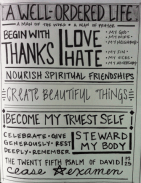 A WELL-ORDERED LIFE
A MAN OF THE WORD & A MAN OF PRAYER
BEGIN WITH
THANKS
LOVE
HATE
• MY GOD
• MY
• MY
• MY SIN
• MY
NOURISH SPIRITUAL FRIENDSHIPS
CREATE BEAUTIFUL THINGS
BECOME MY TRUEST SELF
CELEBRATE • GIVE
GENEROUSLY • REST
DEEPLY • REMEMBER
STEWARD
MY BODY
THE TWENTY FIFTH PSALM OF DAVID
cease examen